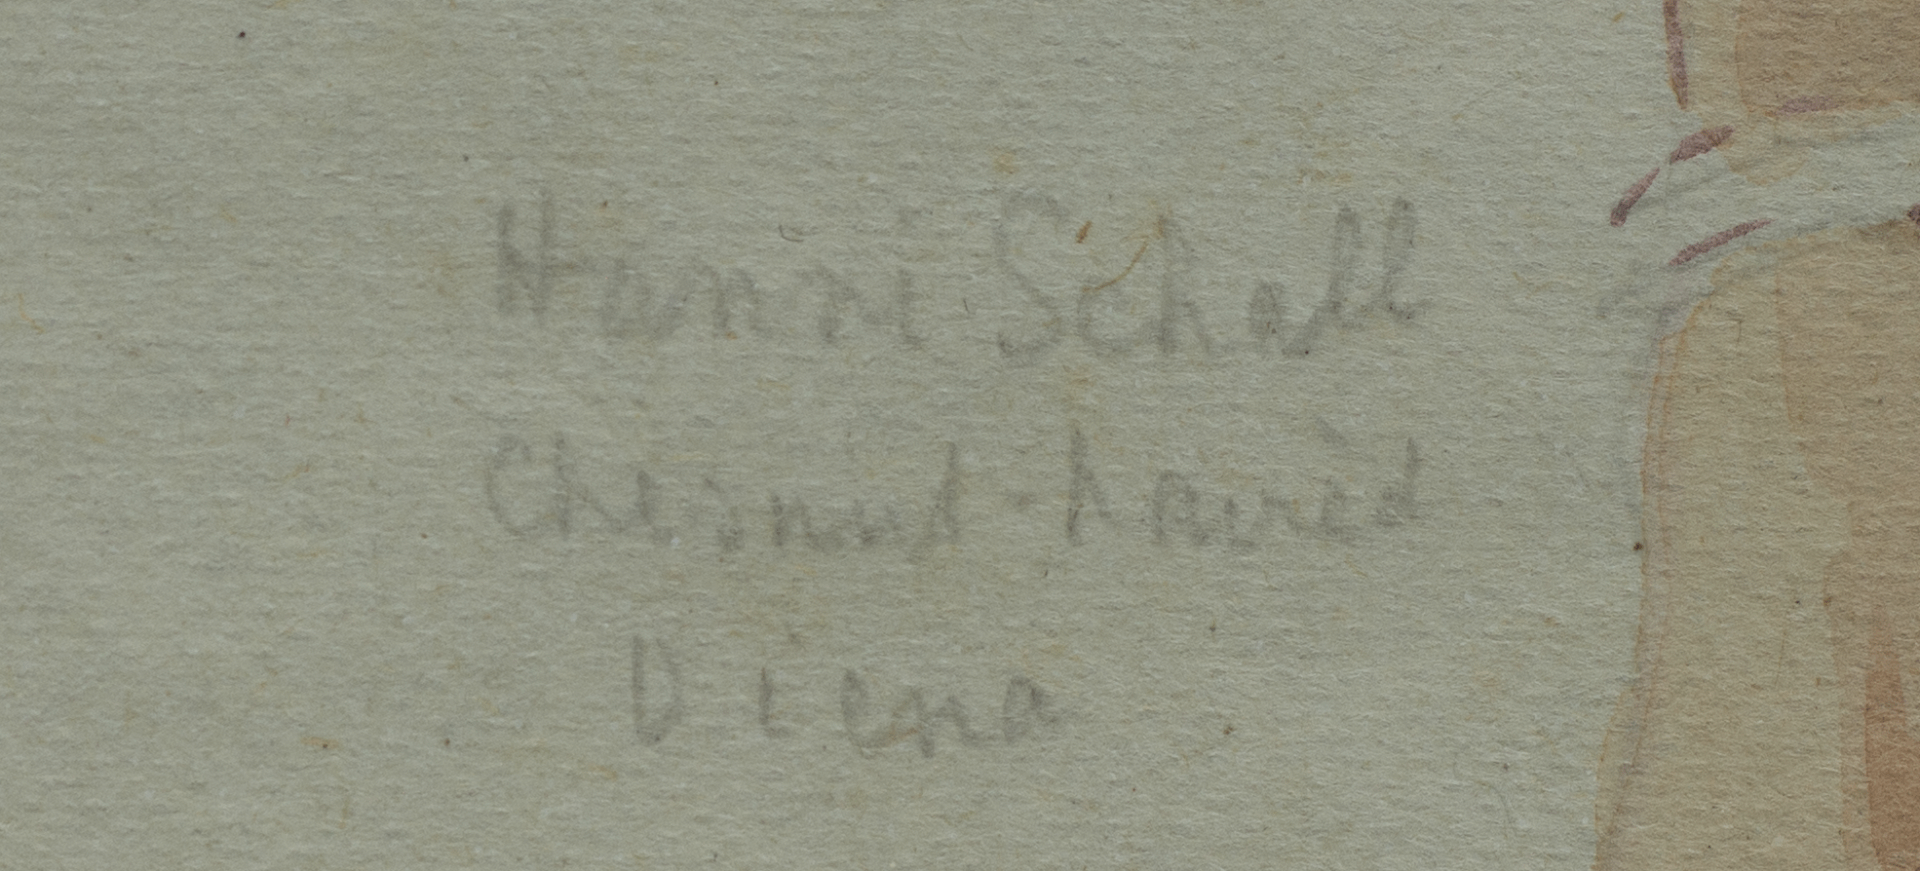 Henri Schall
Chesnut-haired
Diena